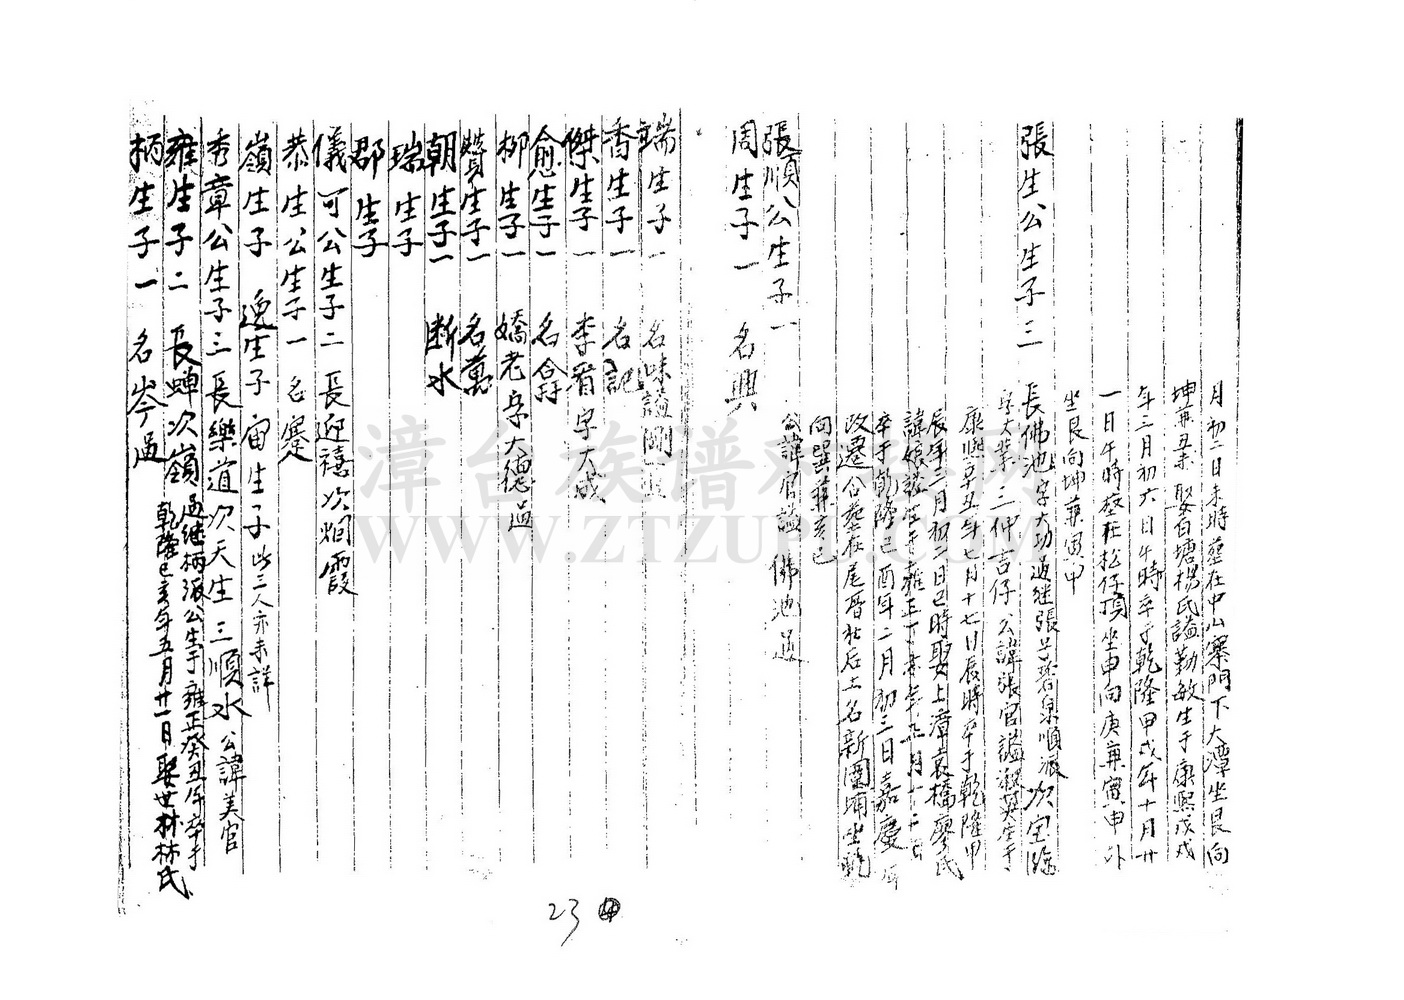 月初二日未時塟在中山寨門下大潭坐艮向
坤兼丑未 娶白塘楊氏謚勤敏生于康熙戊戌
年三月初六日午時卒于乾隆甲戌年十月廿
一日午時塟在松仔頂坐申向庚兼寅申外
坐艮向坤兼寅甲
張生公生子三 長佛池字大功過继張 碧泉順派次宝
字大業三仲吉仔 公諱張官謚 英生于
康熙辛丑年七月十七日辰時卒于乾隆甲
辰年二月初二日巳時娶上漳袁橋廖氏
諱娘謚 于雍正 年九月
卒于乾隆己酉年二月初三日嘉慶
改遷合塟在尾厝社后土名新園埔坐乾
向巽兼亥巳
公諱官謚 佛池過
張順公生子一
周生子一 名興
端生子一 名味謚剛
香生子一 名記
傑生子一 李看字大成
愈生子一 名
柳生子一 嬌老字大德過
贊生子一 名萬
朝生子一 断水
瑞生子
郡生子
儀可公生子二 長迎禧次烟霞
恭生公生子一 名蹇
嶺生子 逸生子宙生子此三人亦未詳
秀章公生子三長樂道次天生三順水 公諱美官
雍生子二 長蟬次嶺 過继柄派公生于雍正癸丑年卒于
乾隆己亥年五月廿一日娶世林林氏
柄生子一 名岑過
23
漳台族谱对接网
WWW.ZTZUPU.COM